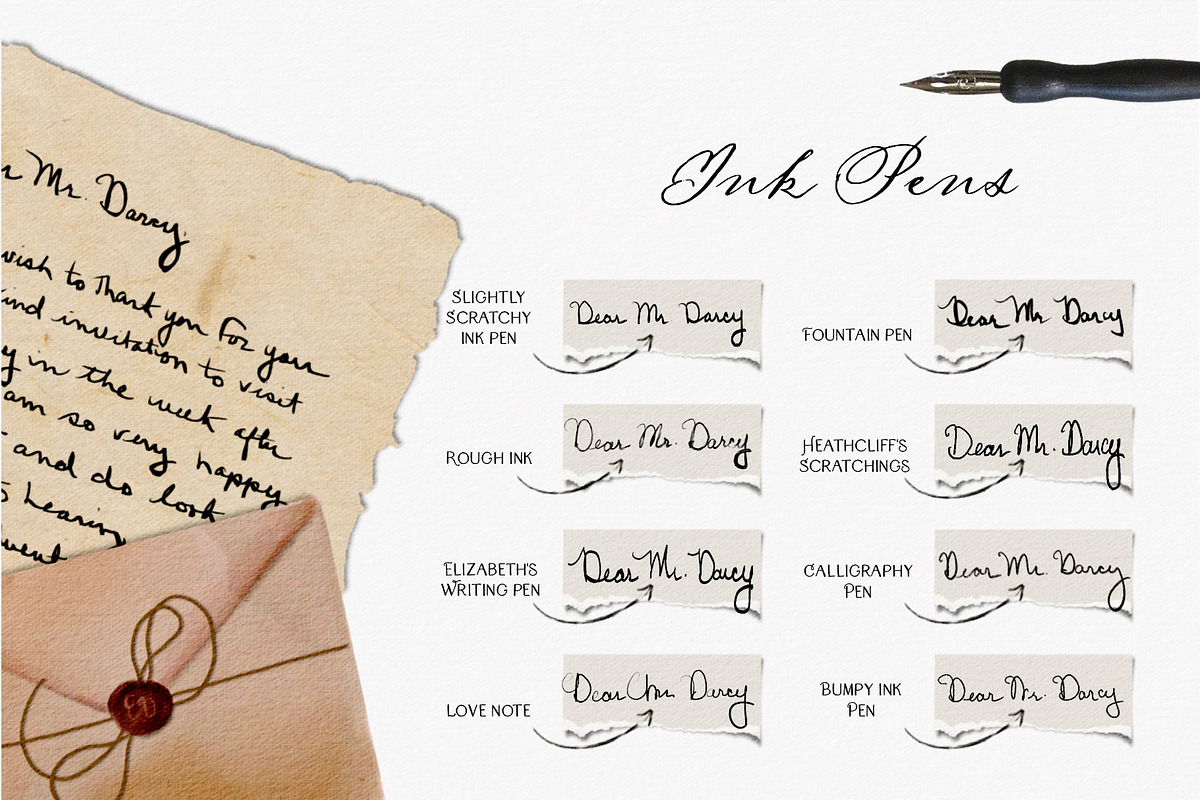 Mr. Darcy,
wish to thank you for your
kind invitation to visit
in the week after
am so very happy
and do look
hearing
Ink Pens
SLIGHTLY
SCRATCHY
INK PEN
Dear Mr Darcy
FOUNTAIN PEN
Dear Mr Darcy
ROUGH INK
Dear Mr. Darcy
HEATHCLIFF'S
SCRATCHINGS
Dear Mr. Darcy
ELIZABETH'S
WRITING PEN
Dear Mr. Darcy
CALLIGRAPHY
PEN
Dear Mr. Darcy
LOVE NOTE
Dear Mr Darcy
BUMPY INK
PEN
Dear Mr. Darcy